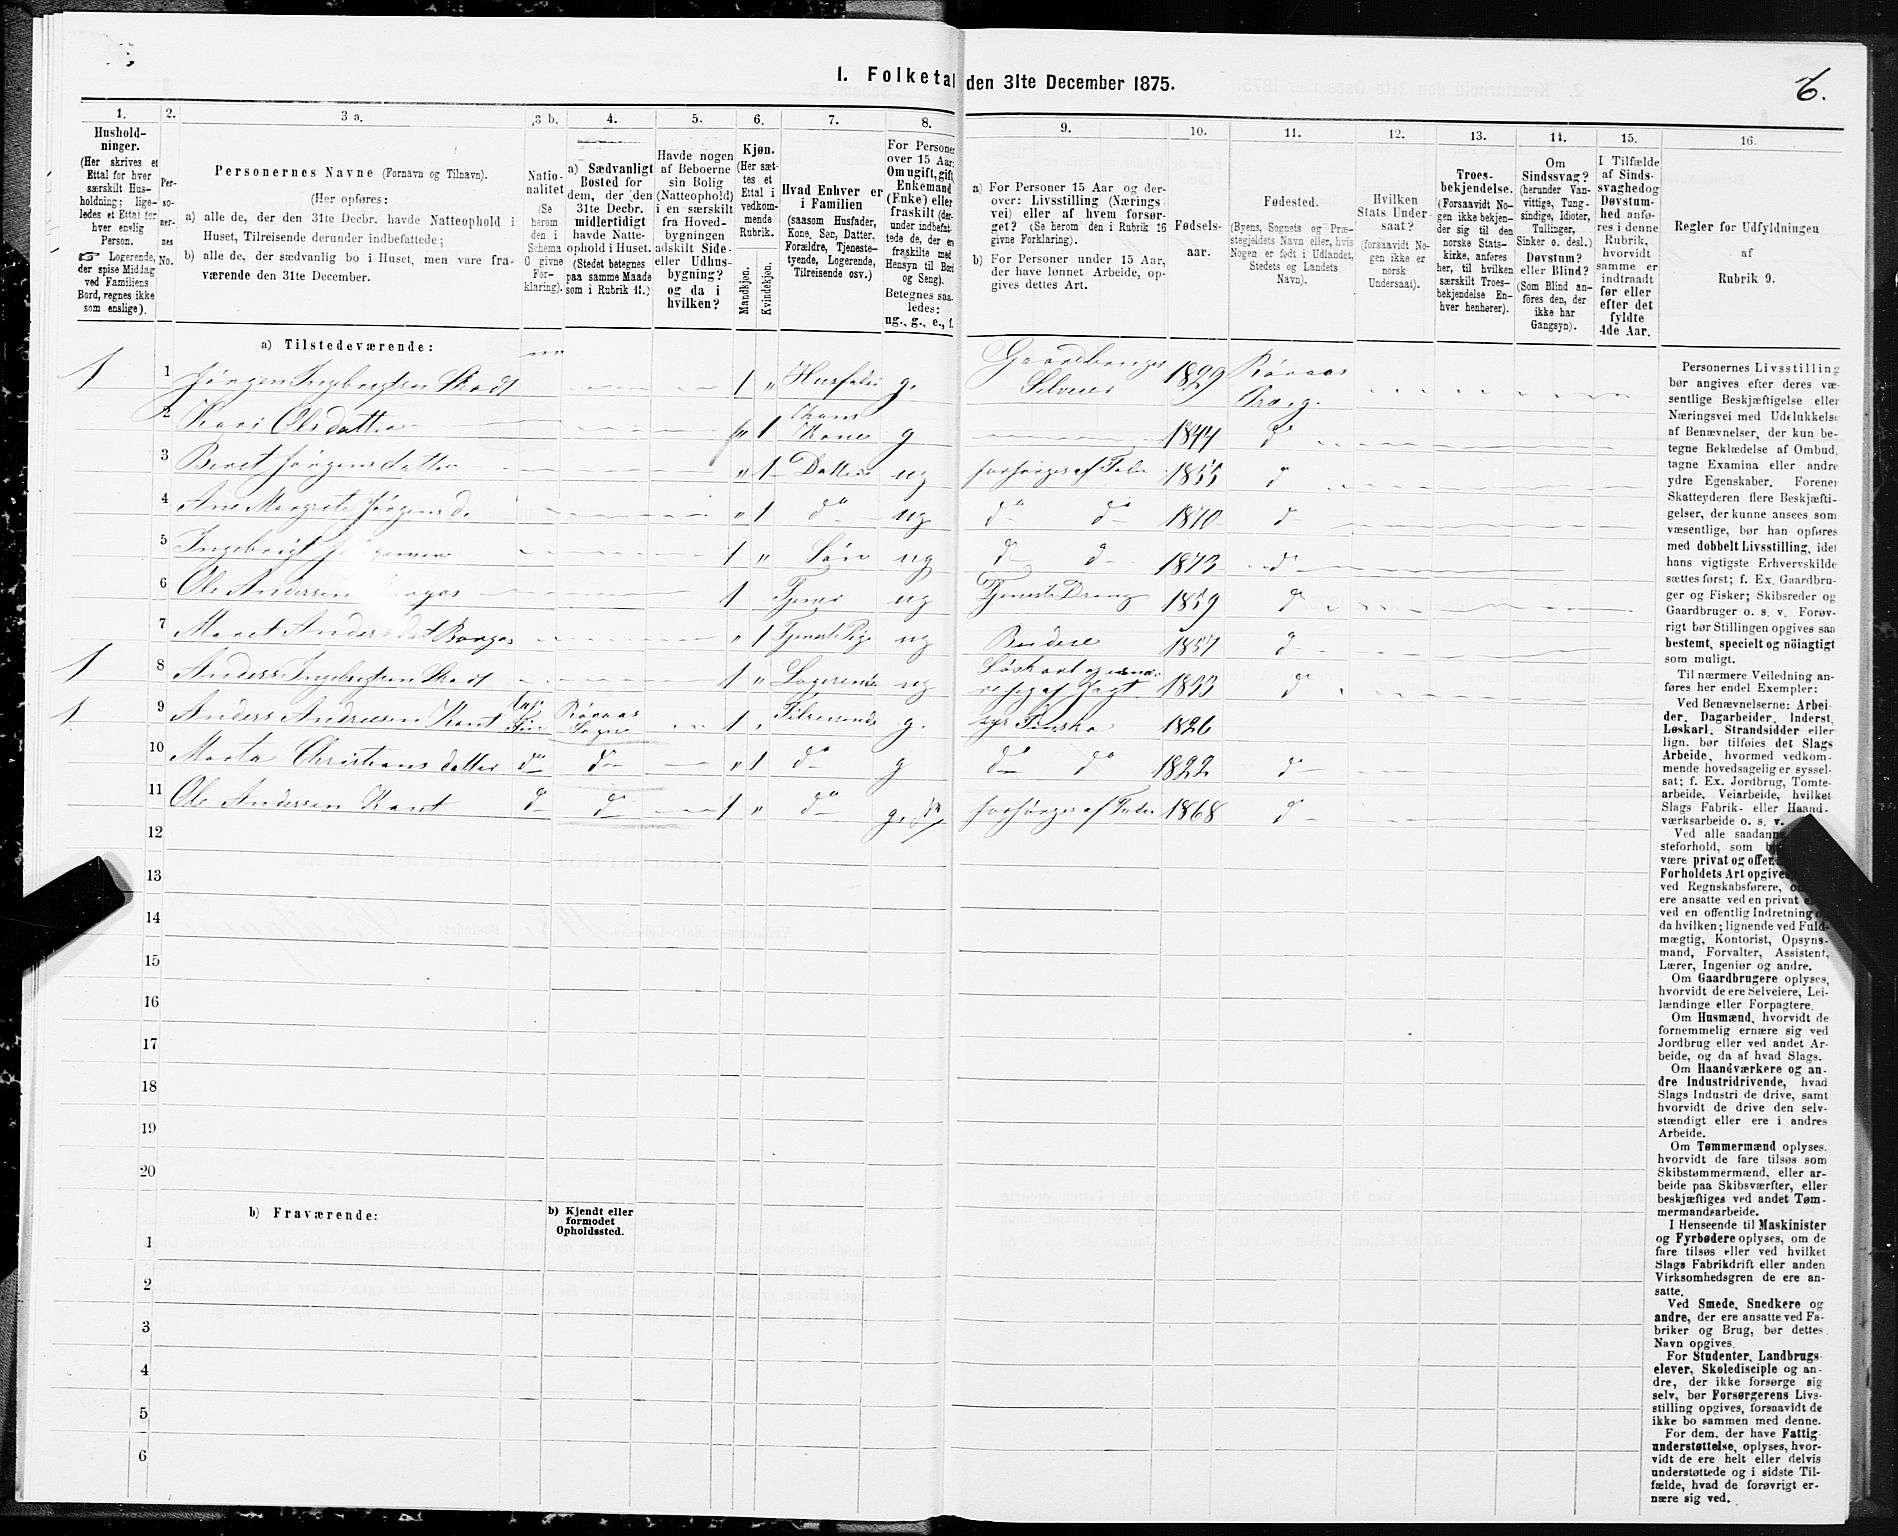 I. Folketal den 31te December 1875.
6.
1.
Hushold-
ninger.
(Her skrives et
Ettal for hver
særskilt Hus-
holdning; lige-
ledes et Ettal for
hver enslig
Person.
Logerende,
der spise Middag
ved Familiens
Bord, regnes ikke
som enslige).
2.
Per-
so-
ner-
nes
No.
3 a.
Personernes Navne (Fornavn og Tilnavn).
(Her opføres:
a) alle de, der den 31te Decbr. havde Natteophold i
Huset, Tilreisende derunder indbefattede;
b) alle de, der sædvanlig bo i Huset, men vare fra-
værende den 31te December.
3 b.
Natio-
nalitet
(Se
herom
den i
Schema
C givne
For-
klaring).
4.
a) Sædvanligt
Bosted for
dem, der den
31te Decbr.
midlertidigt
havde Natte-
ophold i Huset.
(Stedet betegnes
paa samme Maade
som i Rubrik 11.)
5.
Havde nogen
af Beboerne
sin Bolig
(Natteophold)
i en særskilt
fra Hoved-
bygningen
adskilt Side-
eller Udhus-
bygning?
og da i
hvilken?
6.
Kjøn.
(Her sæt-
tes et
Ettal i
vedkom-
mende
Rubrik.
Mandkjøn.
Kvindekjøn.
7.
Hvad Enhver er
i Familien
(saasom Husfader,
Kone, Søn, Datter,
Forældre, Tjeneste-
tyende, Logerende,
Tilreisende osv.)
8.
For Personer
over 15 Aar:
Om ugift, gift,
Enkemand
(Enke) eller
fraskilt (der-
under indbefat-
tede de, der ere
fraskilte med
Hensyn til Bord
og Seng).
Betegnes saa-
ledes:
ug., g., e., f.
9.
a) For Personer 15 Aar og der-
over: Livsstilling (Nærings-
vei) eller af hvem forsør-
get? (Se herom den i Rubrik 16
givne Forklaring).
b) For Personer under 15 Aar,
der have lønnet Arbeide, op-
gives dettes Art.
10.
Fødsels-
aar.
11.
Fødested.
(Byens, Sognets og Præ-
stegjeldets Navn eller, hvis
Nogen er født i Udlandet,
Stedets og Landets
Navn).
12.
Hvilken
Stats Under-
saat?
(forsaavidt No-
gen ikke er
norsk
Undersaat).
13.
Troes-
bekjendelse.
(Forsaavidt No-
gen ikke bekjen-
der sig til den
norske Stats-
kirke, anføres
her, til hvilken
særskilt Troes-
bekjendelse En-
hver henhører).
14.
Om
Sindssvag?
(herunder Van-
vittige, Tung-
sindige, Idioter,
Tullinger,
Sinker o. desl.)
Døvstum?
eller Blind?
(Som Blind an-
føres den, der
ikke har
Gangsyn).
15.
I Tilfælde
af Sinds-
svaghed og
Døvstum-
hed anfø-
res i denne
Rubrik,
hvorvidt
samme er
indtraadt
før eller
efter det
fyldte
4de Aar.
16.
Regler for Udfyldningen
af
Rubrik 9.
a) Tilstedeværende:
1 1 Jørgen Ingebrigtsen 1 „ Husfader g. Gaardbruger Selveier 1829 Røraas Præg.
2 Kari Olsdatter „ 1 Hans Kone g 1844 do
3 Beret Jørgensdatter „ 1 Datter ug forsørges af Fader 1855 d
4 Ane Margrete Jørgensd. „ 1 do ug do do 1870 d
5 Ingebrigt 1 „ Søn ug d d 1873 d
6 Ole Andersen 1 Tjener ug Tjeneste Dreng 1859 d
7 Maret Andersdat „ 1 Tjeneste Pige ug 1857 d
1 8 Anders Ingebrigtsen 1 „ Logerende ug 1833 d
1 9 Anders Andersen Kant Røraas Sogn 1 „ Tilreisende g. 1826
10 Marta Christiansdatter do do „ 1 do g do do 1822 d
11 Ole Andersen Kant d d 1 „ do forsørges af Fader 1868 d
12
13
14
15
16
17
18
19
20
b) Fraværende:
b) Kjendt eller
formodet
Opholdssted.
1
2
3
4
5
6
Personernes Livsstilling
bør angives efter deres væ-
sentlige Beskjæftigelse eller
Næringsvei med Udelukkelse
af Benævnelser, der kun be-
tegne Beklædelse af Ombud,
tagne Examina eller andre
ydre Egenskaber. Forener
Skatteyderen flere Beskjæfti-
gelser, der kunne ansees som
væsentlige, bør han opføres
med dobbelt Livsstilling, idet
hans vigtigste Erhvervskilde
sættes først; f. Ex. Gaardbru-
ger og Fisker; Skibsreder og
Gaardbruger o. s. v. Forøv-
rigt bør Stillingen opgives saa
bestemt, specielt og nøiagtigt
som muligt.
Til nærmere Veiledning an-
føres her endel Exempler:
Ved Benævnelserne: Arbei-
der, Dagarbeider, Inderst,
Løskarl, Strandsidder eller
lign. bør tilføies det Slags
Arbeide, hvormed vedkom-
mende hovedsagelig er syssel-
sat; f. Ex. Jordbrug, Tomte-
arbeide, Veiarbeide, hvilket
Slags Fabrik- eller Haand-
værksarbeide o. s. v.
Ved alle saadanne
steforhold, som
være privat og offen
Forholdets Art opgives,
ved Regnskabsførere,
ere ansatte ved en privat
ved en offentlig Indretning
da hvilken; lignende ved Fuld-
mægtig, Kontorist, Opsyns-
mand, Forvalter, Assistent,
Lærer, Ingeniør og andre.
Om Gaardbrugere oplyses,
hvorvidt de ere Selveiere, Lei-
lændinge eller Forpagtere.
Om Husmænd, hvorvidt de
fornemmelig ernære sig ved
Jordbrug eller ved andet Ar-
beide, og da af hvad Slags.
Om Haandværkere og an-
dre Industridrivende, hvad
Slags Industri de drive, samt
hvorvidt de drive den selv-
stændigt eller ere i andres
Arbeide.
Om Tømmermænd oplyses,
hvorvidt de fare tilsøs som
Skibstømmermænd, eller ar-
beide paa Skibsværfter, eller
beskjæftiges ved andet Tøm-
mermandsarbeide.
I Henseende til Maskinister
og Fyrbødere oplyses, om de
fare tilsøs eller ved hvilket
Slags Fabrikdrift eller anden
Virksomhedsgren de ere an-
satte.
Ved Smede, Snedkere og
andre, der ere ansatte ved Fa-
briker og Brug, bør dettes
Navn opgives.
For Studenter, Landbrugs-
elever, Skoledisciple og an-
dre, der ikke forsørge sig
selv, bør Forsørgerens Livs-
stilling opgives, forsaavidt de
ikke bo sammen med denne.
For dem, der have Fattig-
understøttelse, oplyses, hvor-
vidt de ere helt eller delvis
understøttede og i sidste Til-
fælde, hvad de forøvrigt er-
nære sig ved.